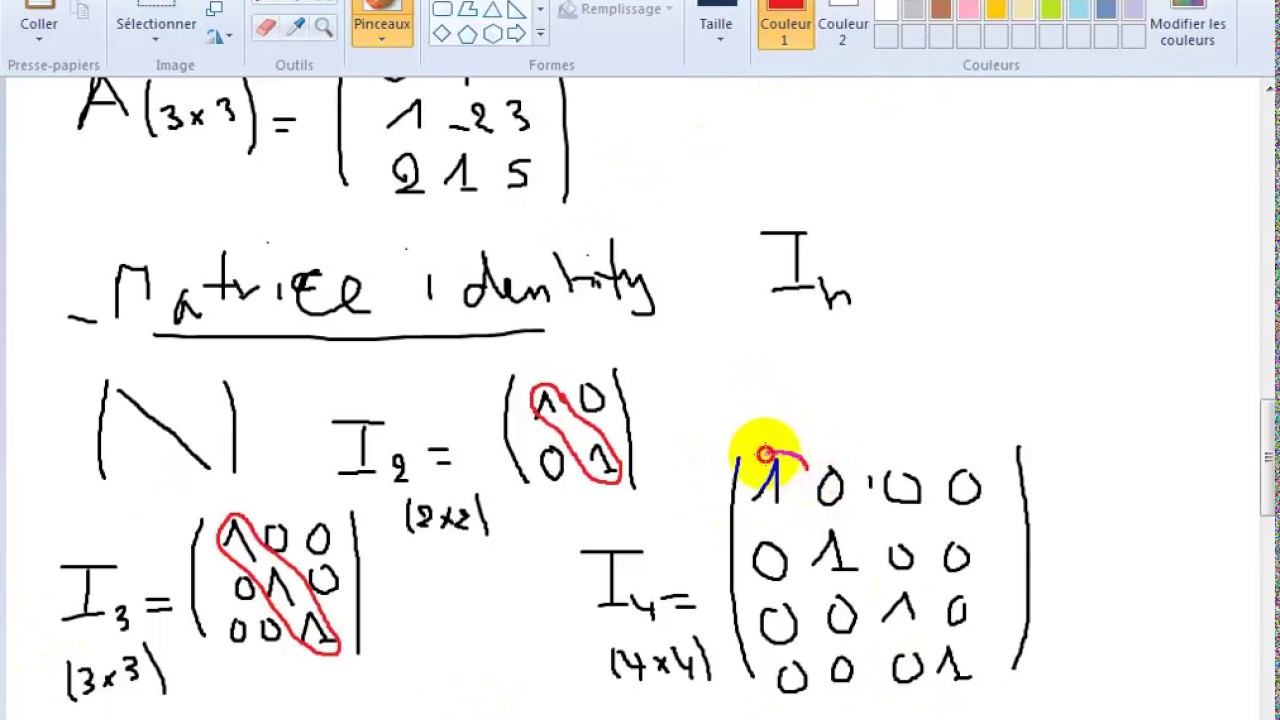 Coller Sélectionner Pinceaux Remplissage Taille Couleur 1 Couleur 2 Modifier les couleurs
Presse-papiers Image Outils Formes Couleurs
A (3×3) = 1 -2 3
2 1 5
- Matrice identity In
I2 = (1 0
0 1)
(2×2)
I3 = (1 0 0
0 1 0
0 0 1)
(3×3)
I4 = (1 0 0 0
0 1 0 0
0 0 1 0
0 0 0 1)
(4×4)